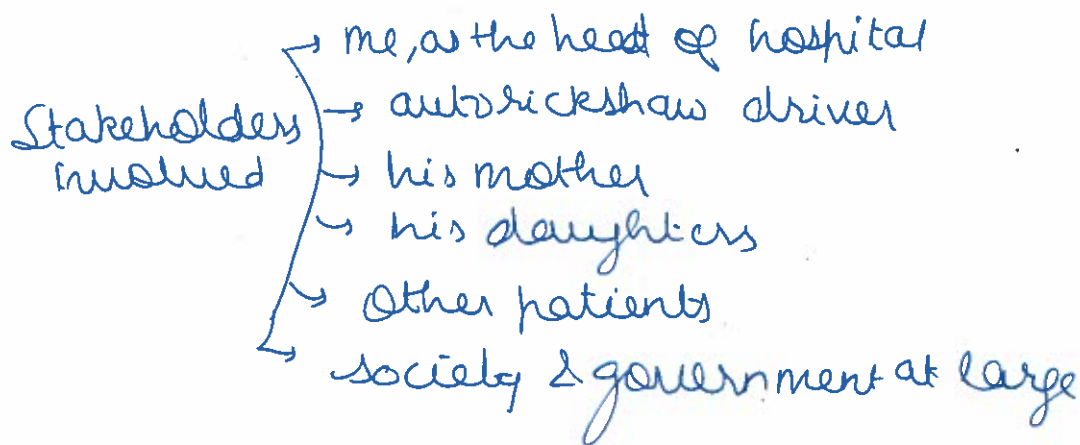 Stakeholders involved
→ me, as the head of hospital
→ autorickshaw driver
→ his mother
→ his daughters
→ other patients
→ society & government at large